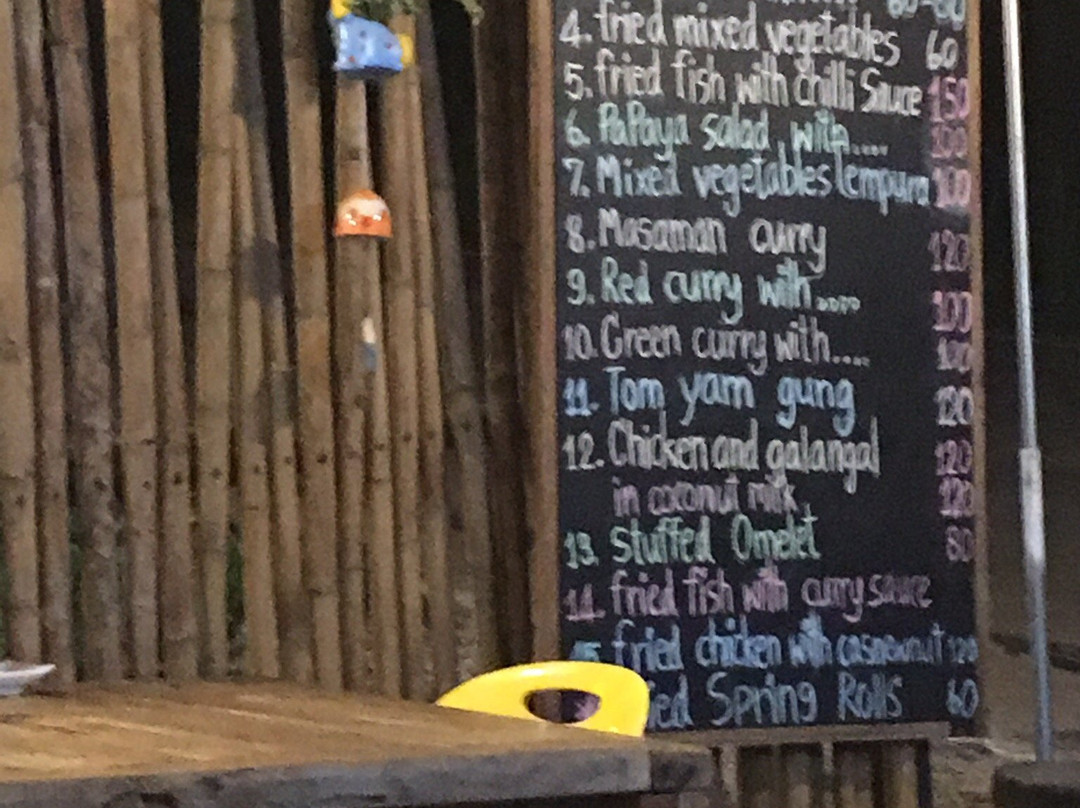 4. fried mixed vegetables 60
5. fried fish with chilli Sauce 150
6. PaPaya salad with.... 100
7. Mixed vegetables tempura 100
8. Masaman curry 120
9. Red curry with.... 100
10. Green curry with.... 100
11. Tom yam gung 120
12. Chicken and galangal 120
in coconut milk 120
13. stuffed Omelet 80
14. fried fish with curry sauce
15. fried chicken with cashewnut 120
ied Spring Rolls 60